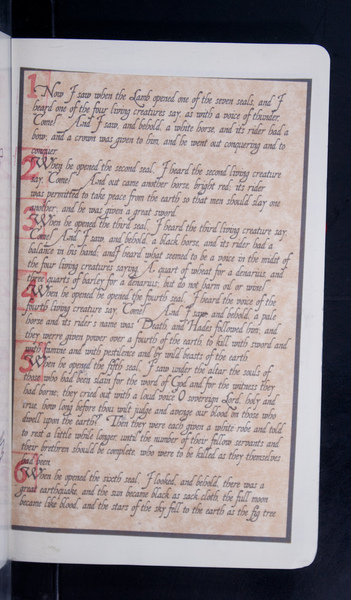 1 Now I saw when the Lamb opened one of the seven seals, and I
heard one of the four living creatures say, as with a voice of thunder,
"Come!" And I saw, and behold, a white horse, and its rider had a
bow; and a crown was given to him, and he went out conquering and to
conquer.
2 When he opened the second seal, I heard the second living creature
say, "Come!" And out came another horse, bright red; its rider
was permitted to take peace from the earth so that men should slay one
another; and he was given a great sword.
3 When he opened the third seal, I heard the third living creature say,
"Come!" And I saw, and behold, a black horse, and its rider had a
balance in his hand; and I heard what seemed to be a voice in the midst of
the four living creatures saying, "A quart of wheat for a denarius, and
three quarts of barley for a denarius; but do not harm oil or wine!"
4 When he opened the fourth seal, I heard the voice of the
fourth living creature say, "Come!" And I saw, and behold, a pale
horse and its rider's name was Death, and Hades followed him; and
they were given power over a fourth of the earth, to kill with sword and
with famine and with pestilence and by wild beasts of the earth
5 When he opened the fifth seal, I saw under the altar the souls of
those who had been slain for the word of God and for the witness they
had borne; they cried out with a loud voice "O sovereign Lord, holy and
true, how long before thou wilt judge and avenge our blood on those who
dwell upon the earth?" Then they were each given a white robe and told
to rest a little while longer, until the number of their fellow servants and
their brethren should be complete, who were to be killed as they themselves
had been.
6 When he opened the sixth seal, I looked, and behold, there was a
great earthquake; and the sun became black as sack cloth, the full moon
became like blood, and the stars of the sky fell to the earth as the fig tree